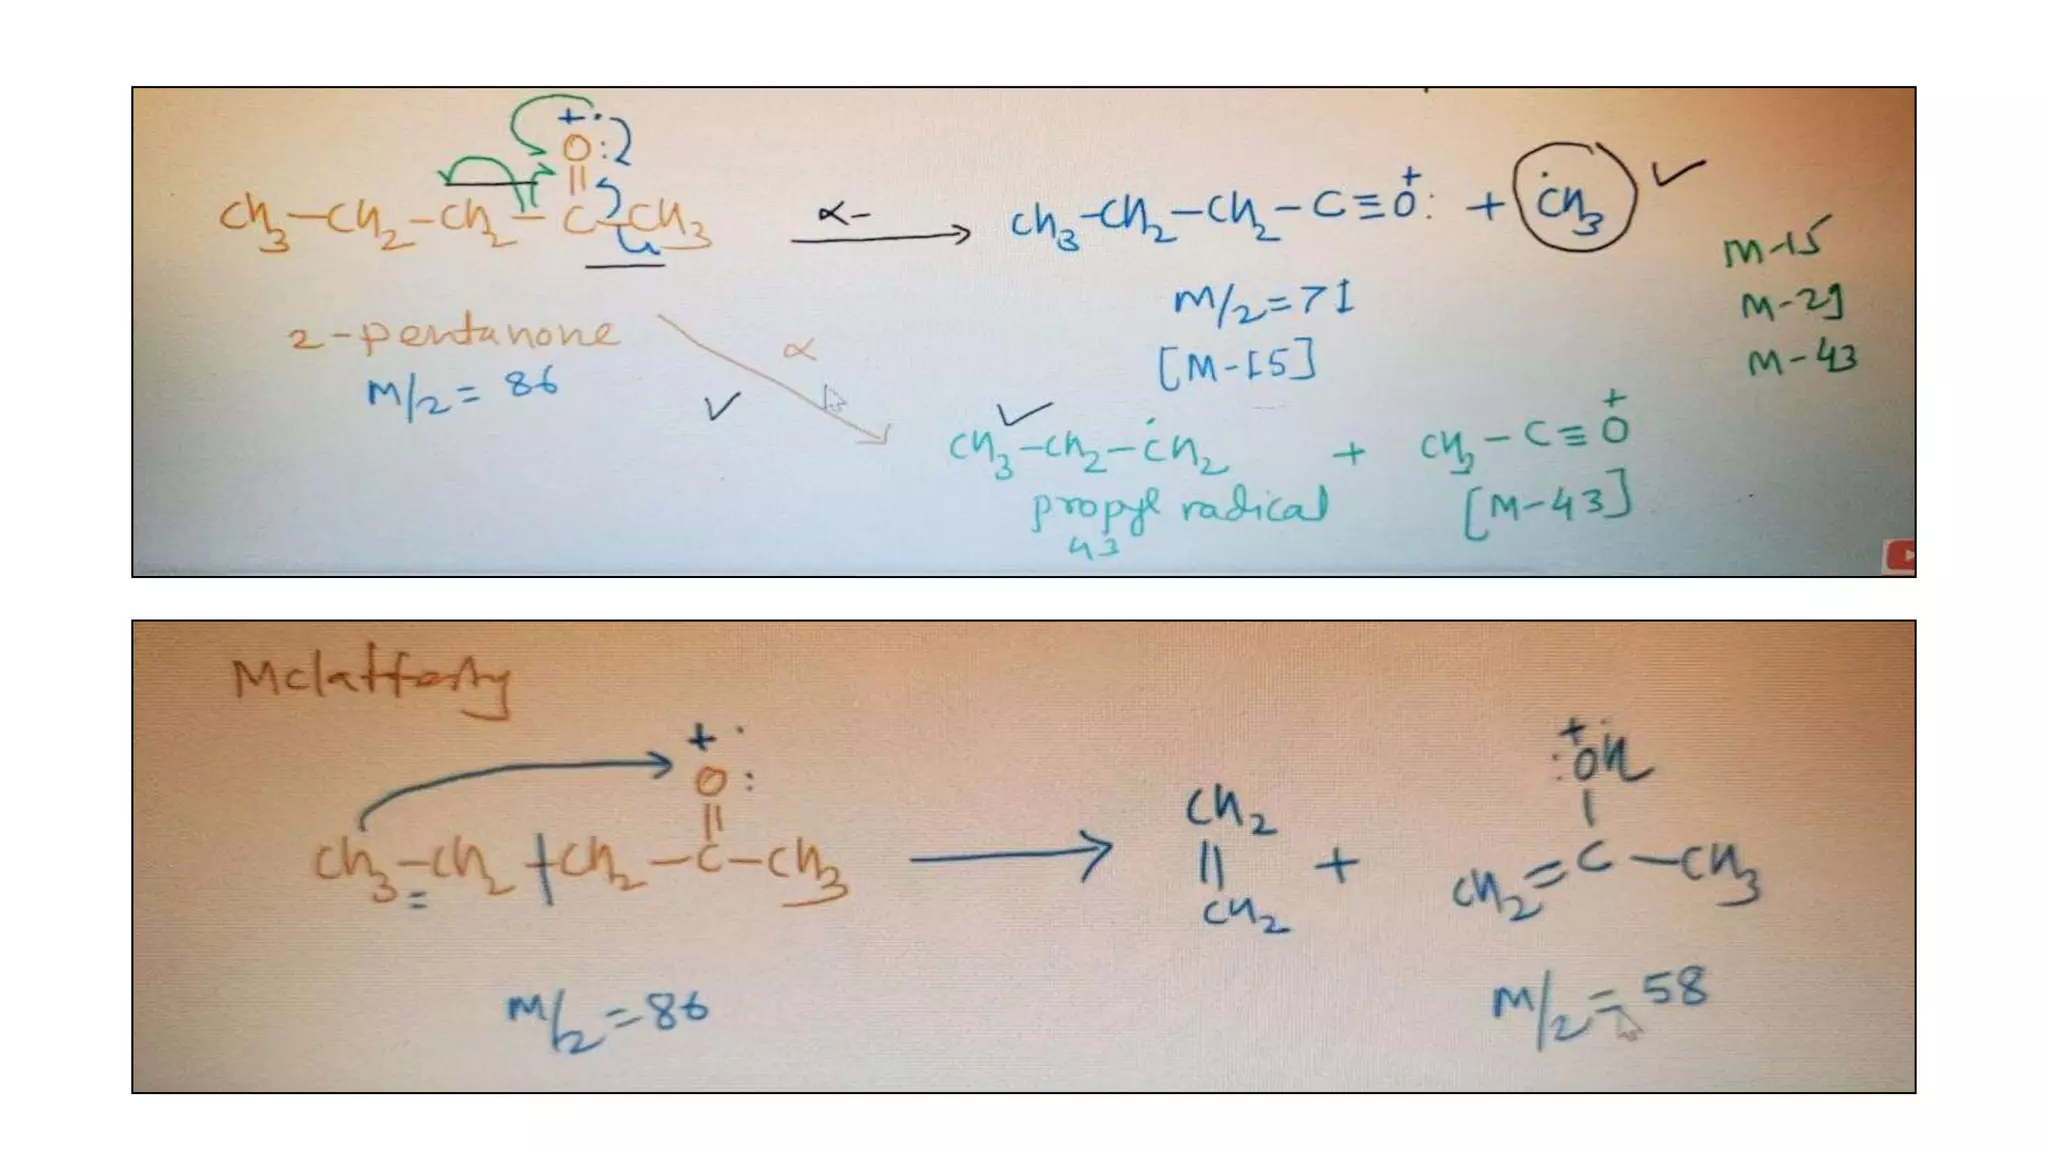 +·
O:
||
CH3-CH2-CH2-C-CH3
α-
CH3-CH2-CH2-C≡O:
+
+ ĊH3 ✓
M-15
M-29
M-43
2-pentanone
M/z = 86
M/z = 71
[M-15]
α
✓
✓
CH3-CH2-ĊH2 + CH3-C≡O
+
propyl radical
43
[M-43]
Mclafferty
+·
O:
||
CH3-CH2+CH2-C-CH3
CH2
||
CH2
+
+·
:OH
|
CH2=C-CH3
M/z = 86
M/z = 58